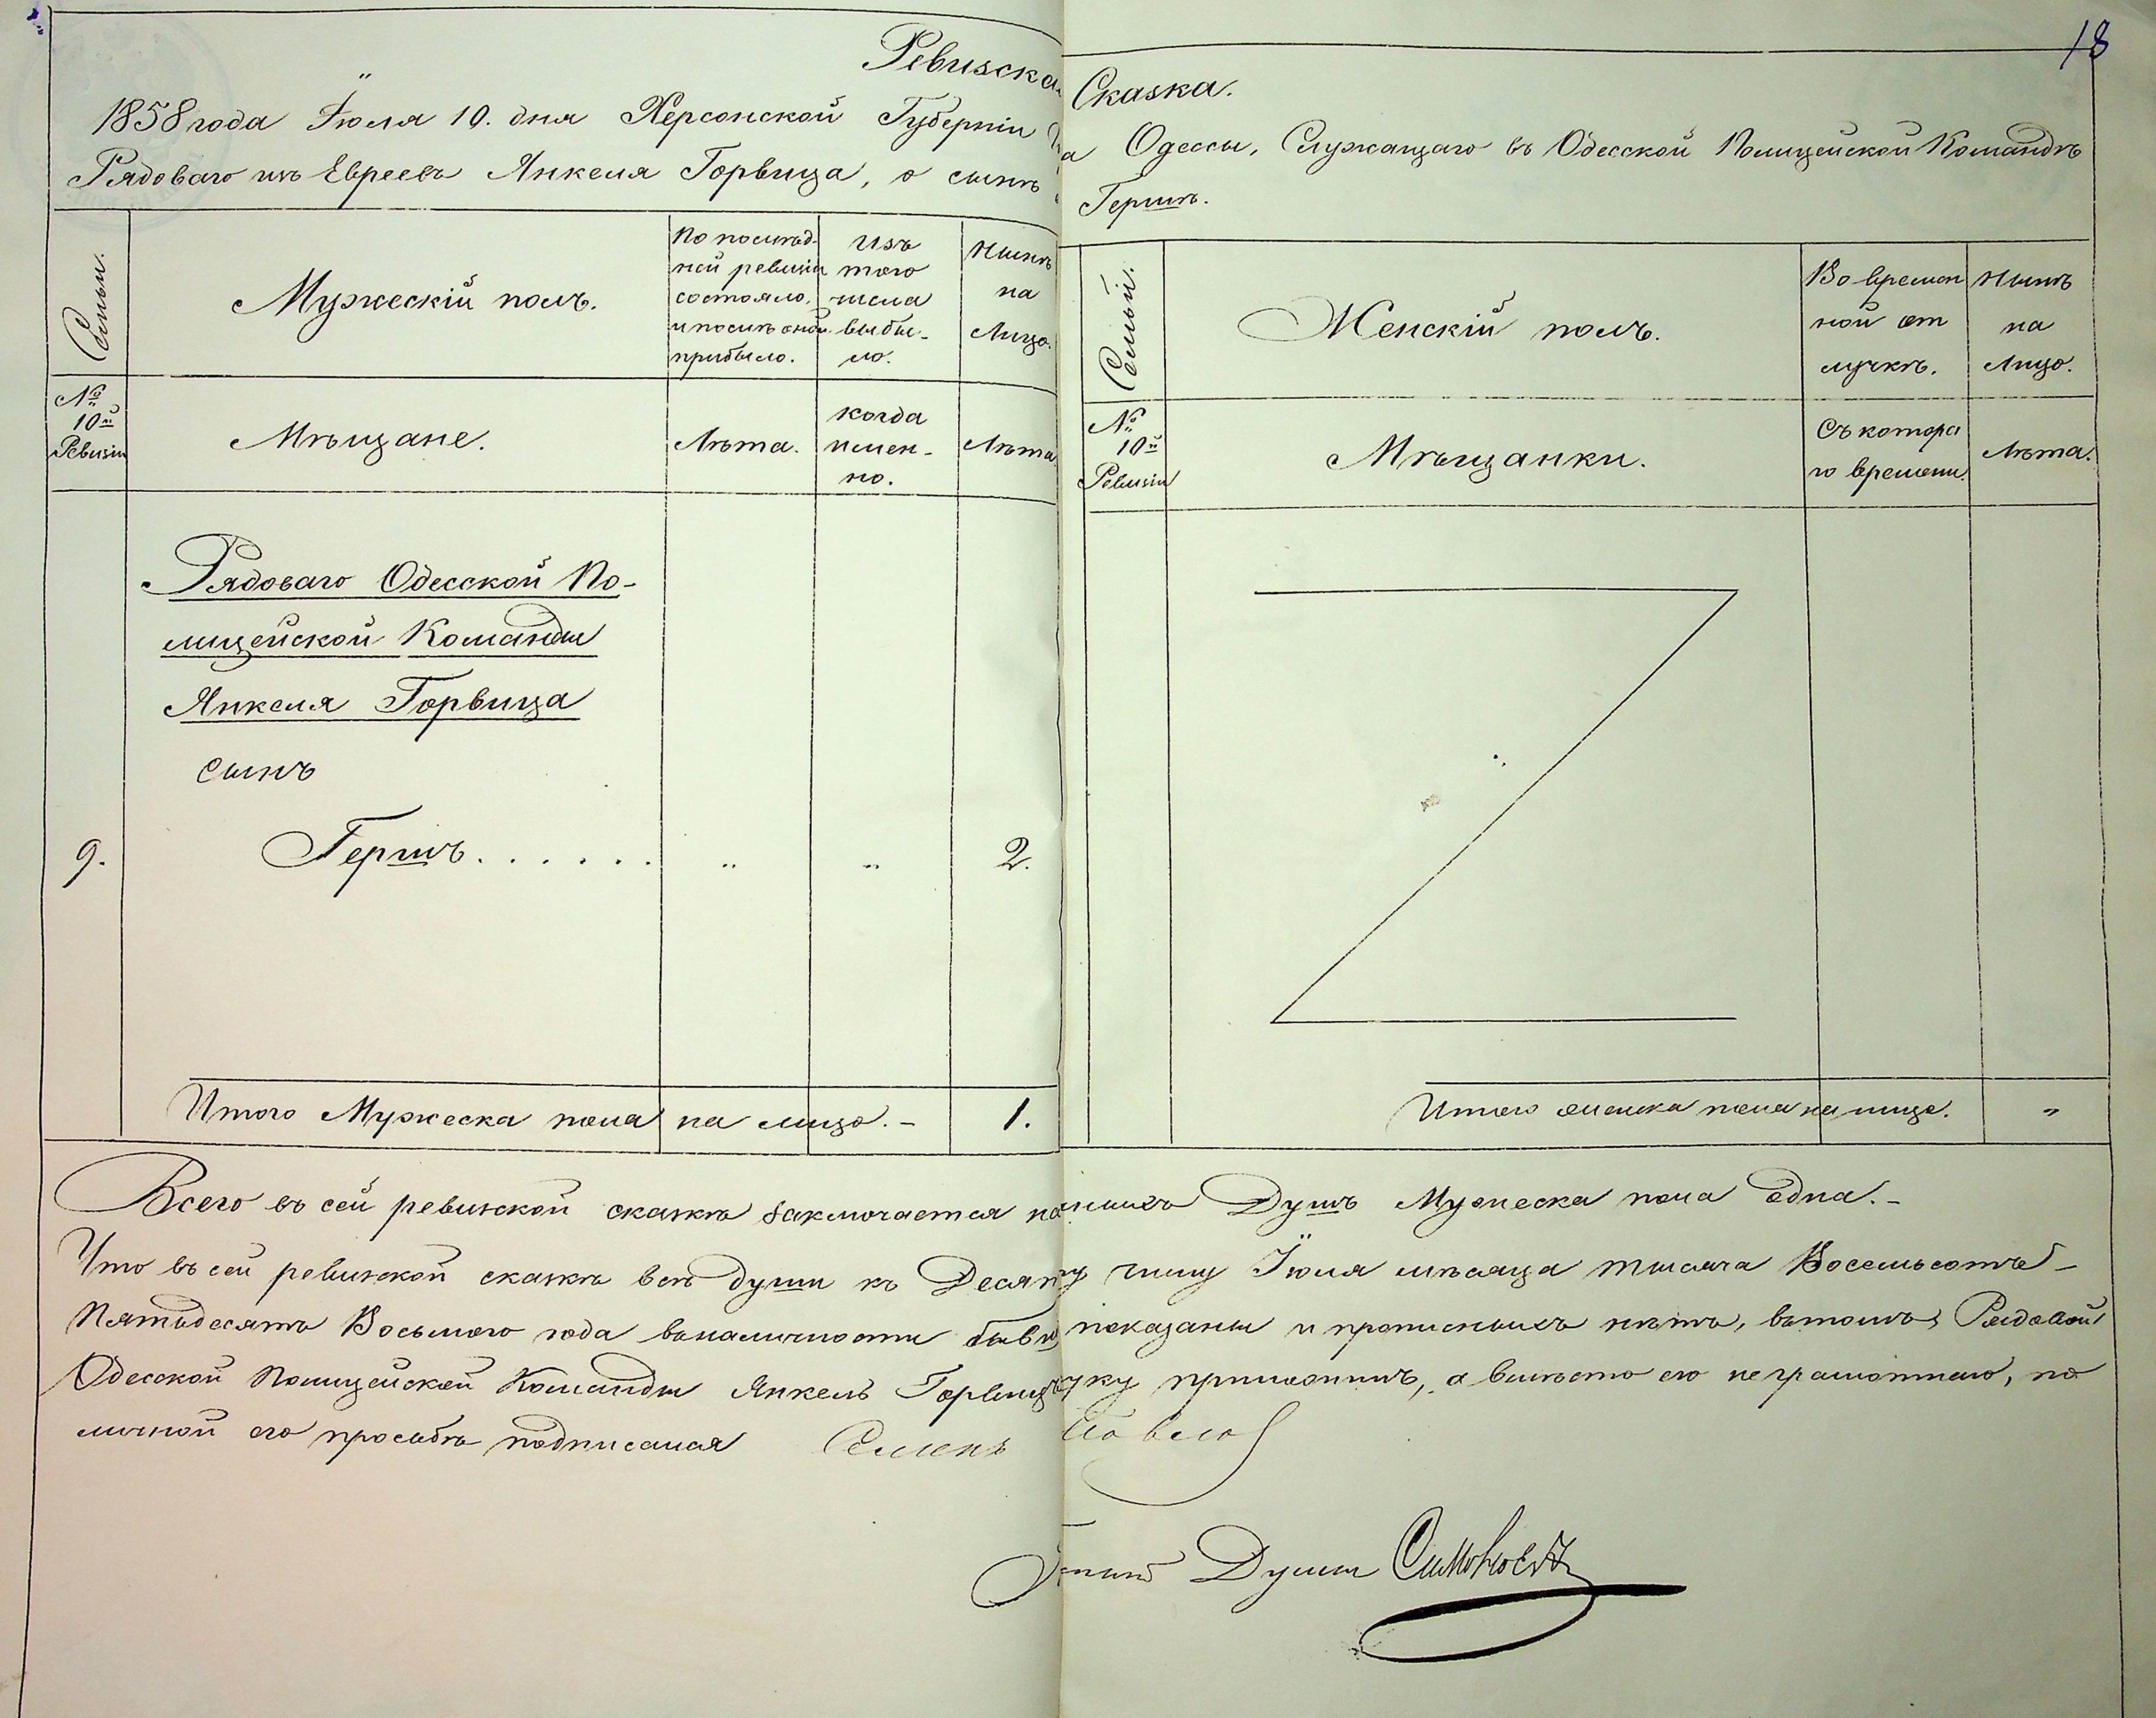 18
Ревизская Сказка.
1858 года Іюля 10. дня Херсонской Губерніи Города Одессы, Служащаго въ Одесской Полицейской Командѣ
Рядоваго изъ Евреевъ Янкеля Горвица, о сынѣ Гершѣ.
Семьи.
Мужескій полъ.
По послѣд-
ней ревизіи
состояло,
и послѣ оной
прибыло.
Изъ
того
числа
выбы-
ло.
Нынѣ
на
Лицо.
№
10й
Ревизіи
Мѣщане.
Лѣта.
когда
имен-
но.
Лѣта
Рядоваго Одесской По-
лицейской Команды
Янкеля Горвица
сынъ
9. Гершъ. . . . . . " " 2.
Итого Мужеска пола на лицо. - 1.
Семьи.
Женскій полъ.
Во времен
ной от
лучкѣ.
Нынѣ
на
Лицо.
№
10й
Ревизіи
Мѣщанки.
Съ котора
го времени.
Лѣта.
Итого женска пола на лицо. "
Всего въ сей ревизской сказкѣ заключается наличныхъ Душъ Мужеска пола одна. -
Что въ сей ревизской сказкѣ всѣ души къ Десятому числу Іюля мѣсяца тысяча Восемьсотъ -
Пятьдесятъ Восьмого года въ наличности бывшія показаны и прописныхъ нѣтъ, въ томъ Рядовой
Одесской Полицейской Команды Янкель Горвицъ руку приложилъ, а вмѣсто его неграмотнаго, по
личной его просьбѣ подписался Семенъ
Думы